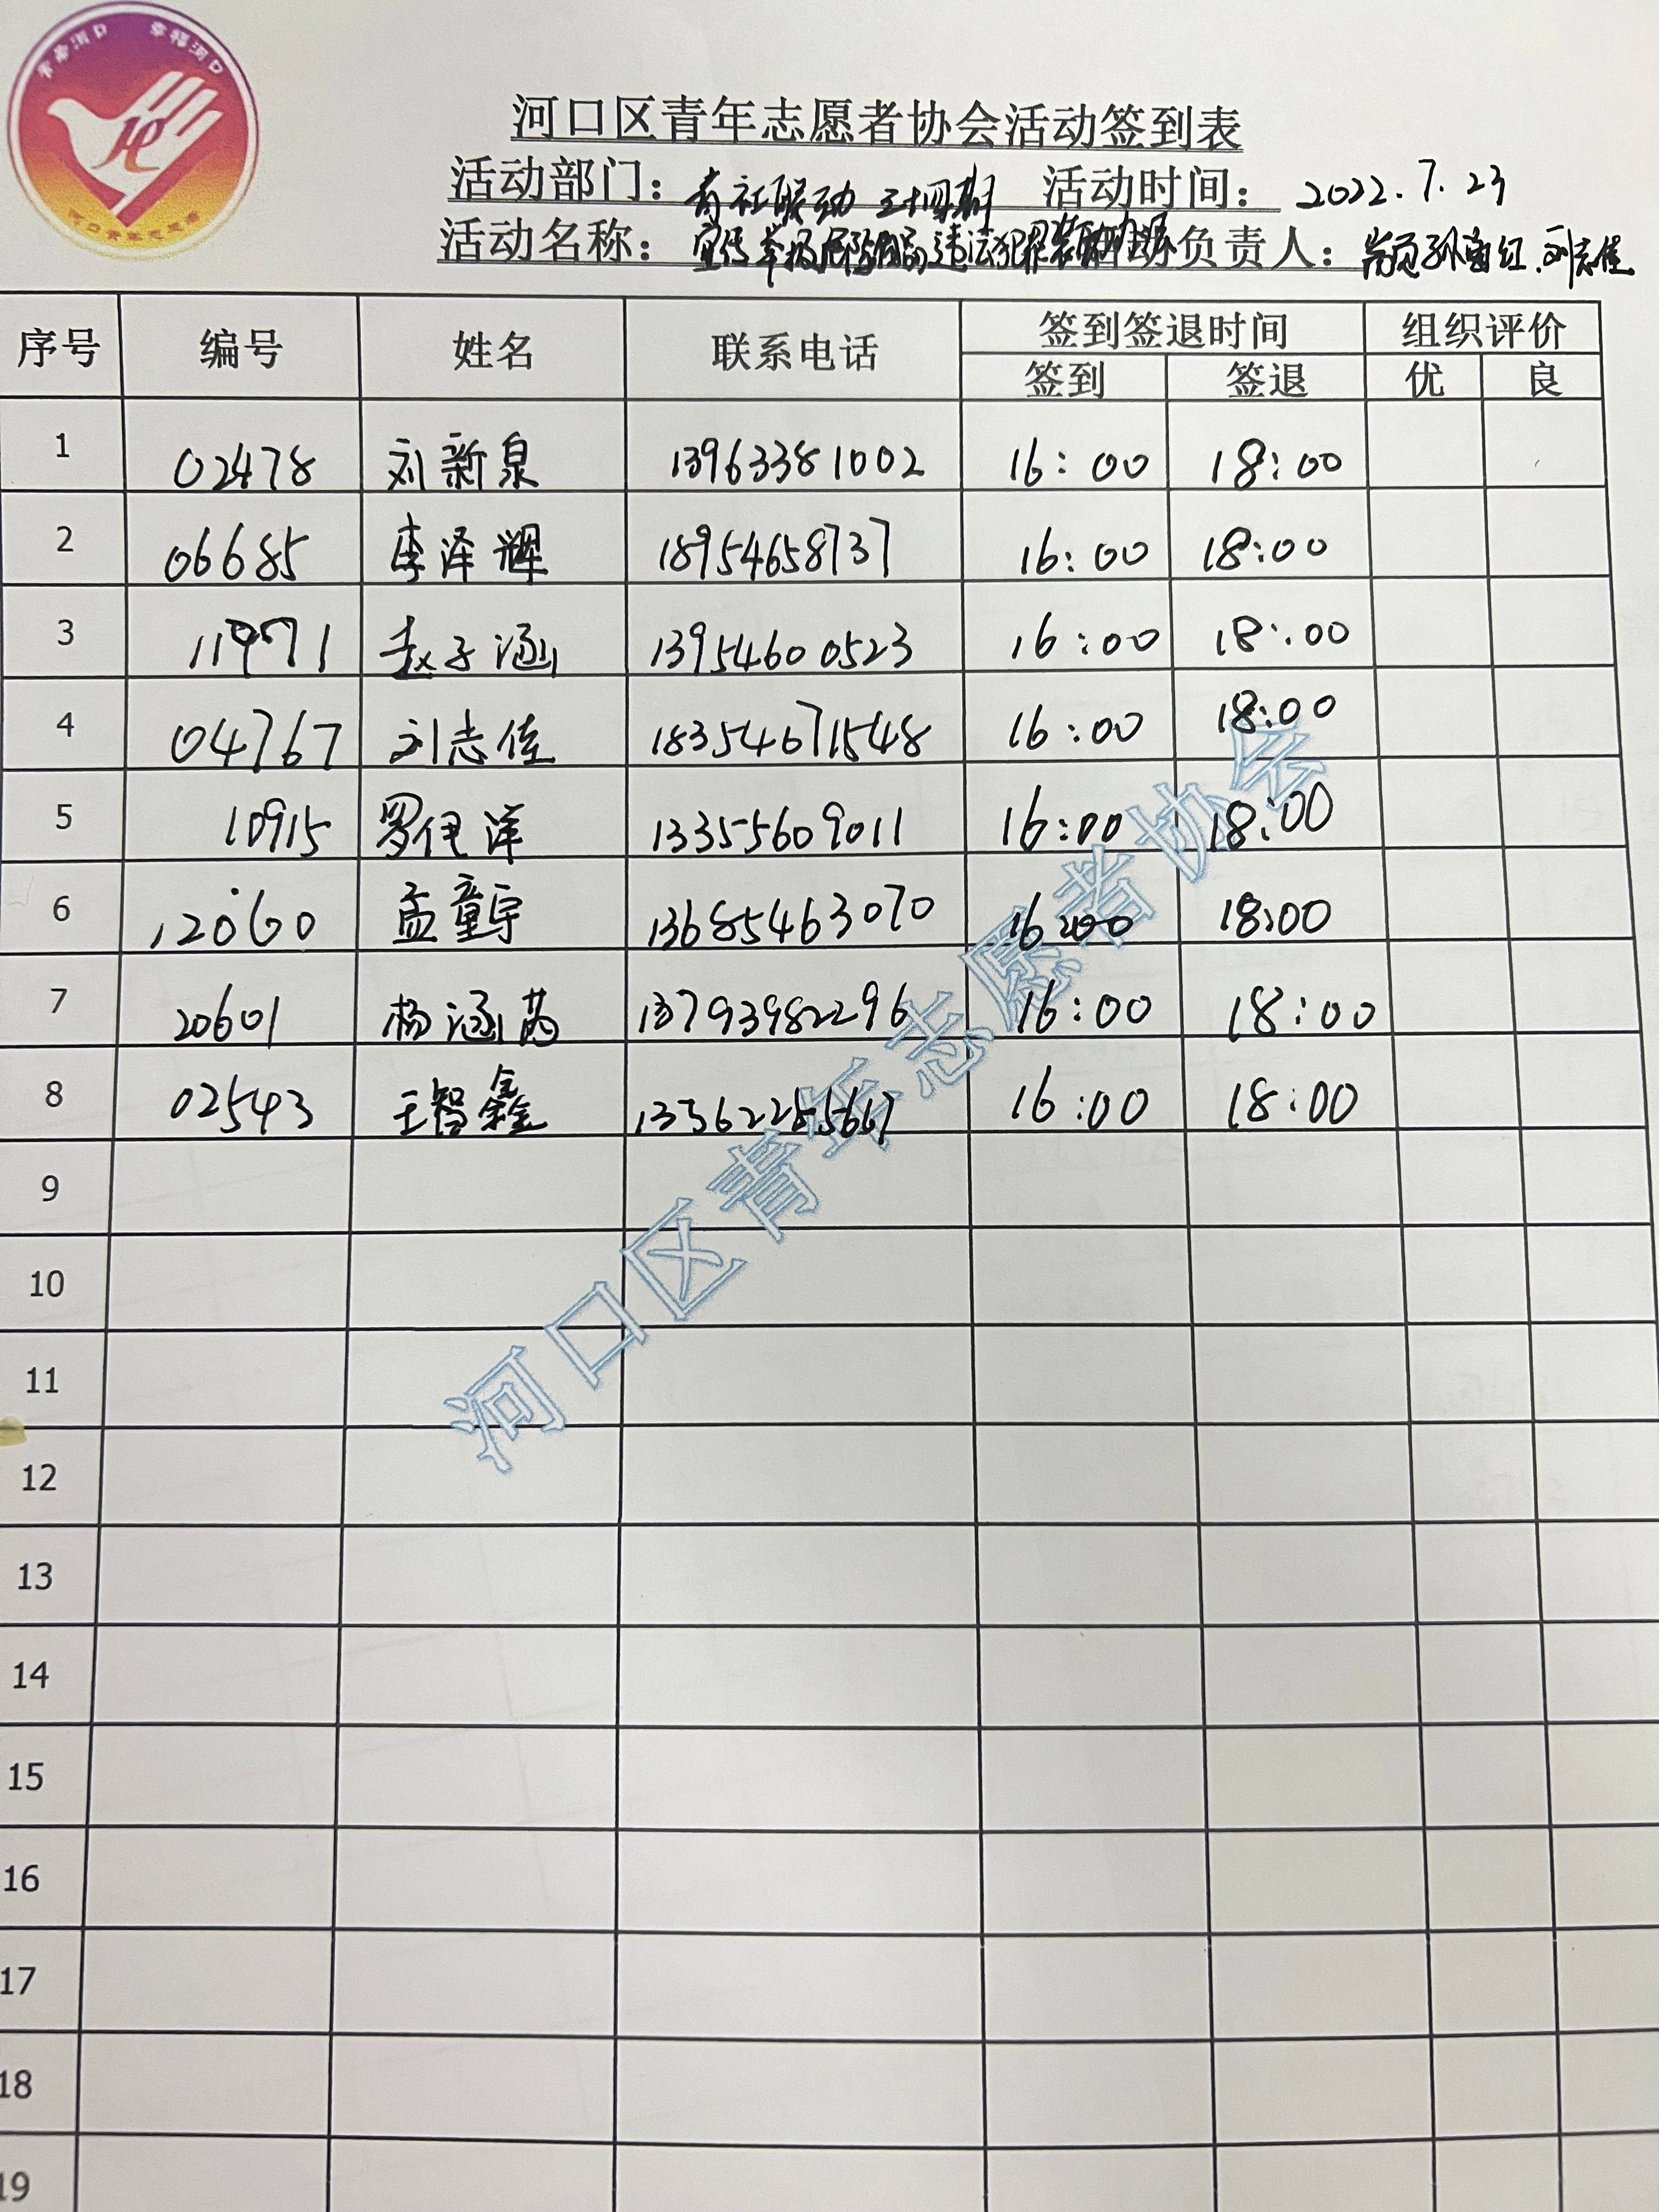 青春河口 幸福河口
河口区青年志愿者协会活动签到表
活动部门：青社联动 三十四期 活动时间：2022.7.23
活动名称：宣传举报危险物品违法犯罪 活动负责人：刘志佳
序号 编号 姓名 联系电话 签到签退时间 组织评价
签到 签退 优 良
1 02478 刘新泉 13963381002 16:00 18:00
2 06685 李泽辉 18954658737 16:00 18:00
3 11971 赵子涵 13954600523 16:00 18:00
4 04767 刘志佳 18354671548 16:00 18:00
5 10915 罗伊洋 13355609011 16:00 18:00
6 12060 孟童宇 13685463070 16:00 18:00
7 20601 杨涵茜 13793982296 16:00 18:00
8 02543 王智鑫 16:00 18:00
9
10
11
12
13
14
15
16
17
18
19
河口区青年志愿者协会